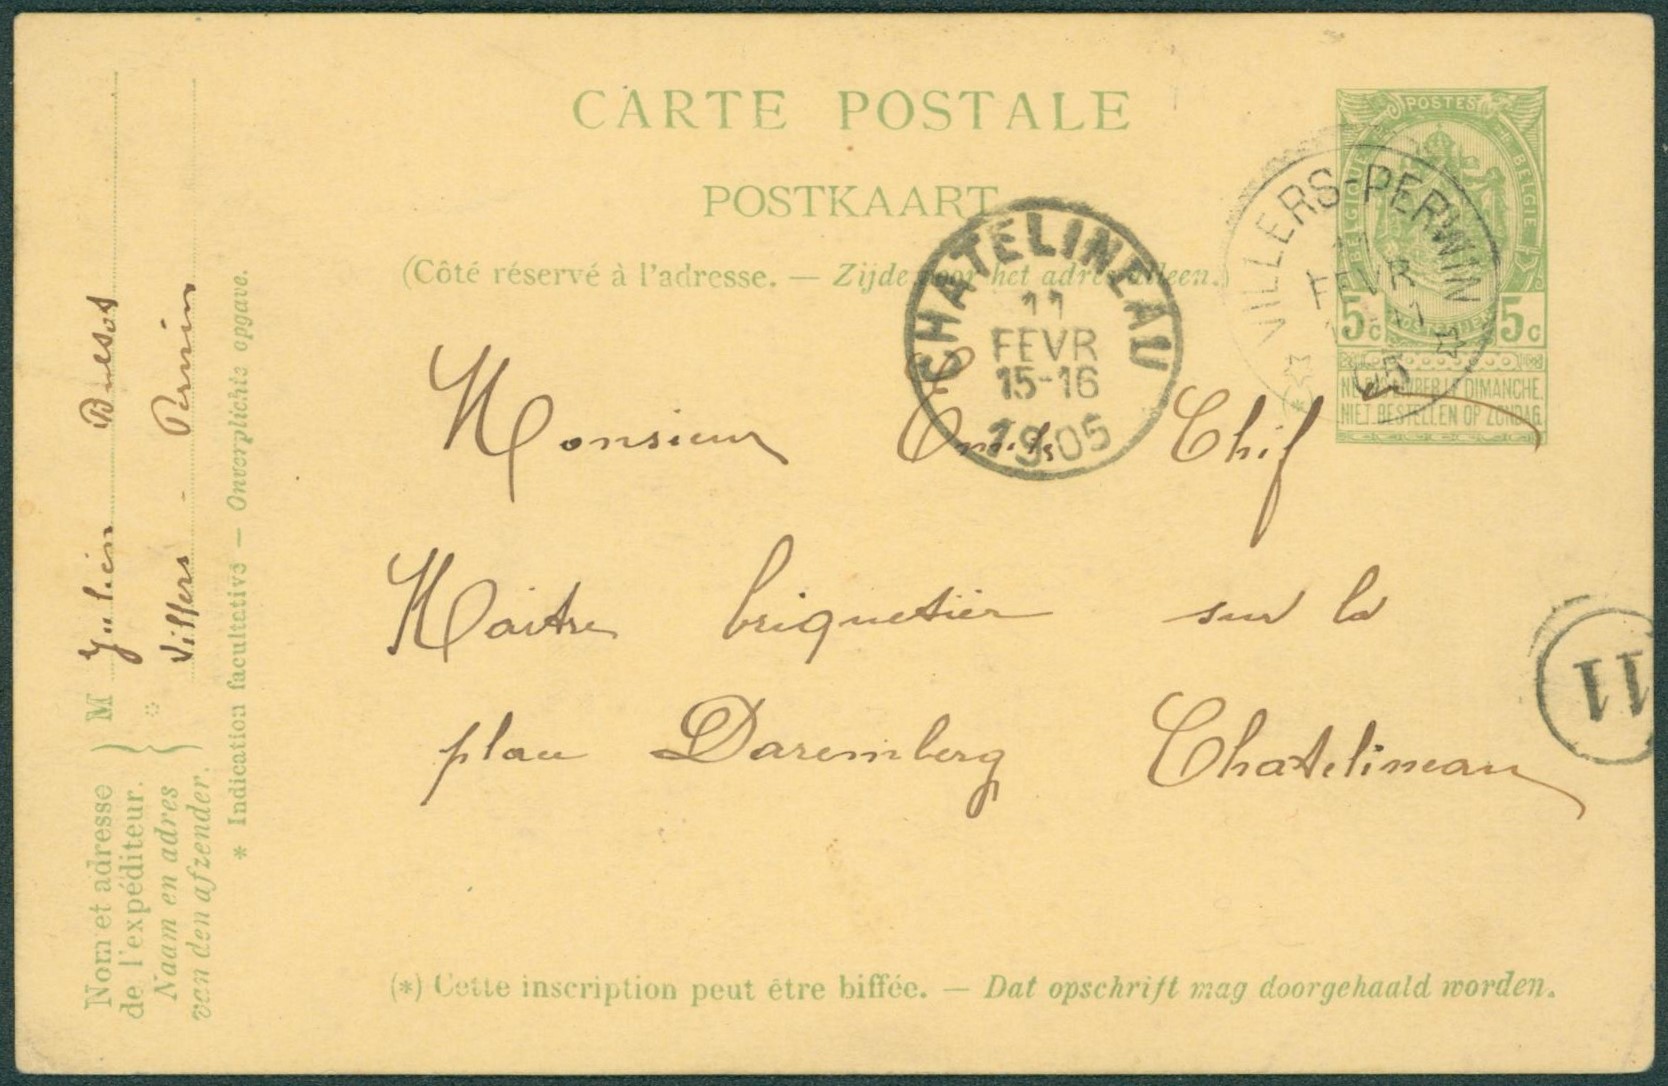 CARTE POSTALE
POSTKAART
(Côté réservé à l'adresse. — Zijde voor het adres alleen.)
POSTES
BELGIQUE
BELGIE
5c 5c
NE PAS LIVRER LE DIMANCHE.
NIET BESTELLEN OP ZONDAG.
VILLERS-PERWIN
11
FEVR
05
CHATELINEAU
11
FEVR
15-16
1905
Monsieur Emile Chif
Maître briquetier sur la
place Daremberg Chatelineau
11
Nom et adresse
de l'expéditeur.
Naam en adres
van den afzender.
M Julien
Villers - Perwin
* Indication facultative — Onverplichte opgave.
(*) Cette inscription peut être biffée. — Dat opschrift mag doorgehaald worden.